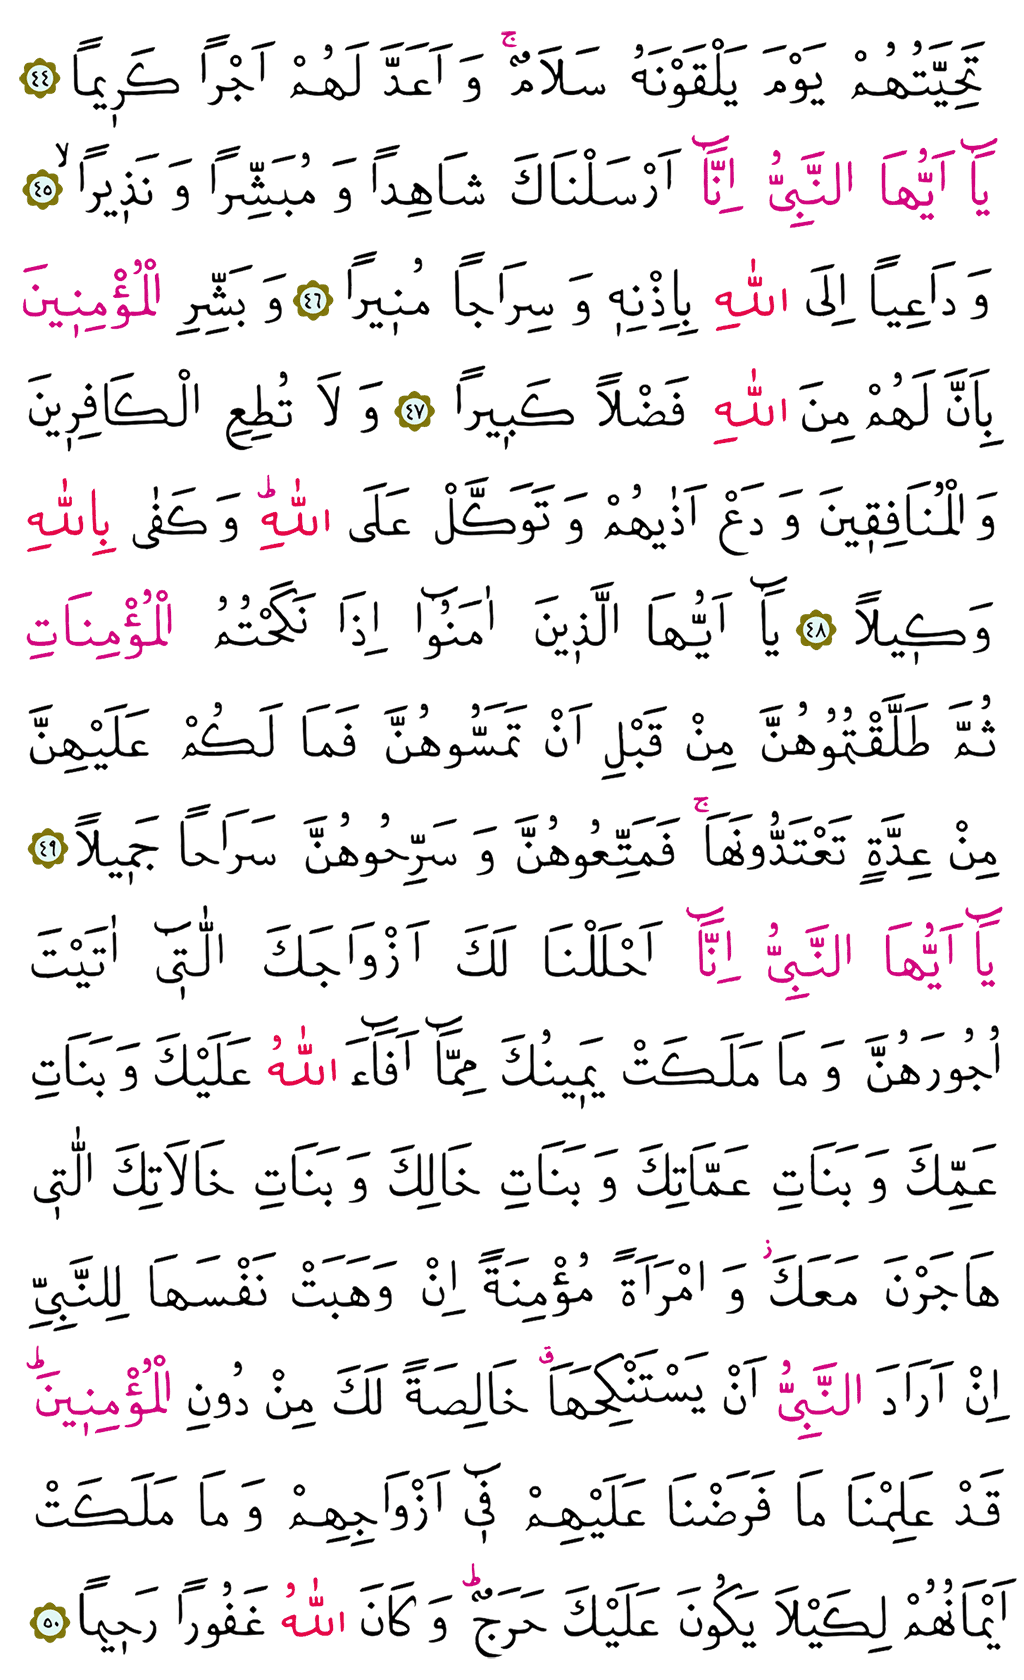 تَحِيَّتُهُمْ يَوْمَ يَلْقَوْنَهُ سَلَامٌۚ وَ اَعَدَّ لَهُمْ اَجْراً كَرٖيماً ﴿٤٤﴾
يَٓا اَيُّهَا النَّبِيُّ اِنَّٓا اَرْسَلْنَاكَ شَاهِداً وَ مُبَشِّراً وَ نَذٖيراًۙ ﴿٤٥﴾
وَ دَاعِياً اِلَى اللّٰهِ بِاِذْنِهٖ وَ سِرَاجاً مُنٖيراً ﴿٤٦﴾ وَ بَشِّرِ الْمُؤْمِنٖينَ
بِاَنَّ لَهُمْ مِنَ اللّٰهِ فَضْلاً كَبٖيراً ﴿٤٧﴾ وَ لَا تُطِعِ الْكَافِرٖينَ
وَالْمُنَافِقٖينَ وَ دَعْ اَذٰيهُمْ وَ تَوَكَّلْ عَلَى اللّٰهِؕ وَ كَفٰى بِاللّٰهِ
وَكٖيلاً ﴿٤٨﴾ يَٓا اَيُّهَا الَّذٖينَ اٰمَنُٓوا اِذَا نَكَحْتُمُ الْمُؤْمِنَاتِ
ثُمَّ طَلَّقْتُمُوهُنَّ مِنْ قَبْلِ اَنْ تَمَسُّوهُنَّ فَمَا لَكُمْ عَلَيْهِنَّ
مِنْ عِدَّةٍ تَعْتَدُّونَهَاۚ فَمَتِّعُوهُنَّ وَ سَرِّحُوهُنَّ سَرَاحاً جَمٖيلاً ﴿٤٩﴾
يَٓا اَيُّهَا النَّبِيُّ اِنَّٓا اَحْلَلْنَا لَكَ اَزْوَاجَكَ الّٰتٖٓي اٰتَيْتَ
اُجُورَهُنَّ وَ مَا مَلَكَتْ يَمٖينُكَ مِمَّٓا اَفَٓاءَ اللّٰهُ عَلَيْكَ وَ بَنَاتِ
عَمِّكَ وَ بَنَاتِ عَمَّاتِكَ وَ بَنَاتِ خَالِكَ وَ بَنَاتِ خَالَاتِكَ الّٰتٖي
هَاجَرْنَ مَعَكَؗ وَ امْرَاَةً مُؤْمِنَةً اِنْ وَهَبَتْ نَفْسَهَا لِلنَّبِيِّ
اِنْ اَرَادَ النَّبِيُّ اَنْ يَسْتَنْكِحَهَاࣗ خَالِصَةً لَكَ مِنْ دُونِ الْمُؤْمِنٖينَؕ
قَدْ عَلِمْنَا مَا فَرَضْنَا عَلَيْهِمْ فٖٓي اَزْوَاجِهِمْ وَ مَا مَلَكَتْ
اَيْمَانُهُمْ لِكَيْلَا يَكُونَ عَلَيْكَ حَرَجٌؕ وَ كَانَ اللّٰهُ غَفُوراً رَحٖيماً ﴿٥٠﴾